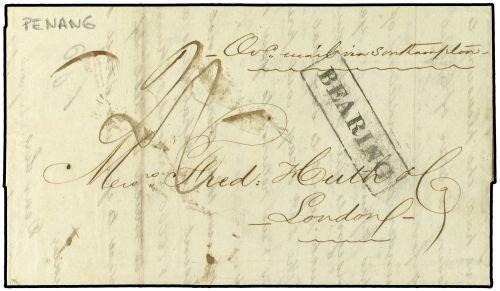 PENANG
Ovd. mail via Southampton
BEARING
Messrs. Fred: Huth & Co
London